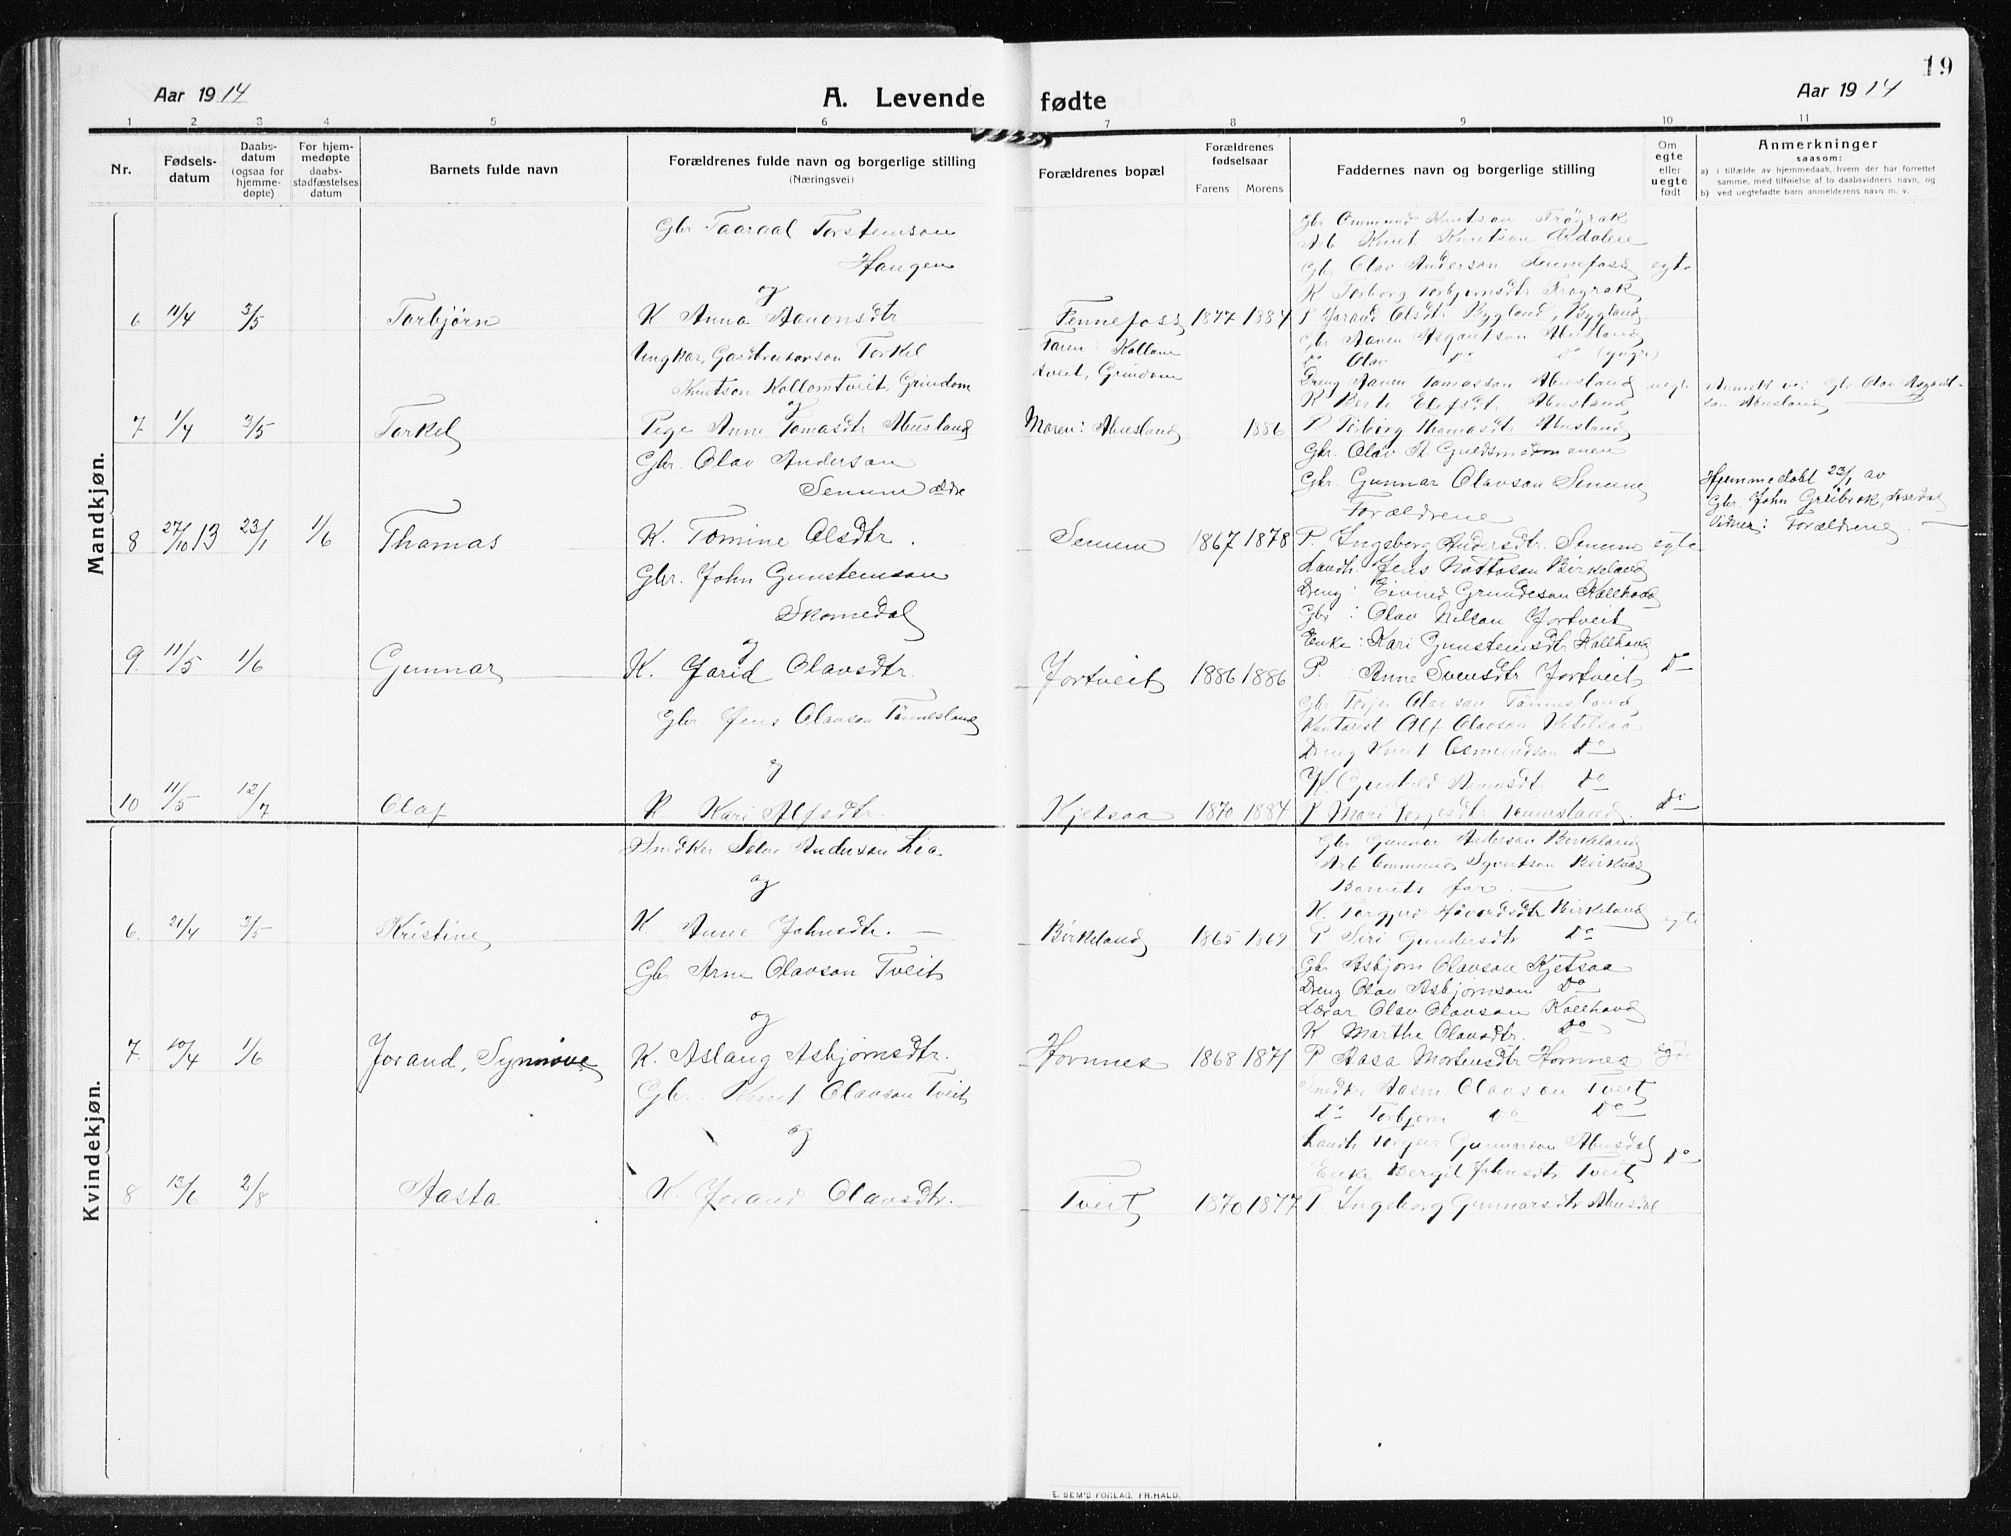 19
Aar 1914
A. Levende fødte
Aar 1914
1 2 3 4 5 6 7 8 9 10 11
Nr.
Fødsels-
datum
Daabs-
datum
(ogsaa for
hjemme-
døpte)
For hjem-
medøpte
daabs-
stadfæstelses
datum
Barnets fulde navn
Forældrenes fulde navn og borgerlige stilling
(Næringsvei)
Forældrenes bopæl
Forældrenes
fødselsaar
Farens Morens
Faddernes navn og borgerlige stilling
Om
egte
eller
uegte
født
Anmerkninger
saasom:
a) i tilfælde av hjemmedaab, hvem der har forrettet
samme, med tilføielse af to daabsvidners navn, og
b) ved uegtefødte barn anmelderens navn m. v.
Mandkjøn.
6 11/4 3/5 Torbjørn
Gbr Taaraal Torstemson
Haugen
og
K Anna Aanonsdtr
Fennefoss 1877 1884
Gbr Ommund Knutson Frøyrak
Arb Knut Knutson Ardalen
Gbr Olav Anderson Fennefoss
K Torborg Torbjørnsdtr Frøyrak
P Jorand Olsdtr Bygland, Bygland
egte
7 1/4 3/5 Torkel
Ungkar, Torkel
Knutson Kallamtveit, Grindem
og
Pige Anne Tomasdtr Abusland
Faren: Kallam
tveit, Grindem
Moren: Abusland 1886
Gbr Aanen Asgautson Abusland
Do Olav Do Do (yngr)
Dreng Aanen Tomasson Abusland
K Berte Elefsdtr Abusland
P Thomasdtr Abusland
uegte
Anmeldt ved Gbr Olav Asgaut-
son Abusland
8 27/10 13 23/1 1/6 Thomas
Gbr. Olav Anderson
Senum ældre
K. Tomine Olsdtr.
Senum 1867 1878
Gbr. Olav A Guldsmedmoen
Gbr. Gunnar Olavson Senum
Forældrene
P. Ingeborg Andersdtr. Senum
egte
Hjemmedøbt 23/1 av
Gbr. John Greibrok,
Vidner: Forældrene.
9. 11/5 1/6 Gunnar
Gbr. John Gunstemson
Skomedal
og
K. Jorid Olavsdtr.
Jortveit 1886 1886
Landh. Jens Nottoson Birkeland
Dreng: Eivind Grundeson Kallhovd
Gbr: Olav Nilson Jortveit
Enke: Kari Gunstemsdtr Kallhovd
P. : Anne Svensdtr Jortveit
Do
10 11/5 12/7 Olaf
Gbr Jens Olavson Tønnesland
og
K Kari Alfsdtr.
Kjetsaa 1870 1884
Gbr Terjer Olavson Tønnesland
Kontorist Alf Olavson Ketelsaa
Dreng Knut Osmundson Do
K Gunhild Do
P Mari Terjesdtr Tønnesland
Do
Kvindekjøn.
6. 21/4 3/5 Kristine
Snedker Salve Anderson Lia
og
K. Anne Johnsdtr.
Birkeland 1865 1869
Gbr Gunnar Anderson Birkeland
Arb Ommund Syvertson Birkeland
Barnets far
K. Torgjus Håvardsdtr Birkeland
P Siri Gundersdtr Do
egte
7. 10/4 1/6 Jorand, Synnøve
Gbr Arne Olavson Tveit
og
K. Aslaug Asbjørnsdtr.
Hornnes 1868 1871
Gbr Asbjørn Olavson Kjetsaa
Dreng Olav Asbjørnson Do
Lærar Olav Olavson Kallhovd
K Marthe Olavsdtr. Do
P Aasa Mortensdtr Hornnes
egte
8 13/6 2/8 Aasta
Gbr. Knut Olavson Tveit
og
K. Jorand Olavsdtr.
Tveit 1870 1877
Snedker Aasm. Olavson Tveit
Do Torbjørn Do Do
Landh Torgjer Gunnarson Abusdal
Enke Bergit Johnsdtr Tveit
P. Ingeborg Gunnarsdtr Abusdal
Do
E. SEM'S FORLAG, FR.HALD.